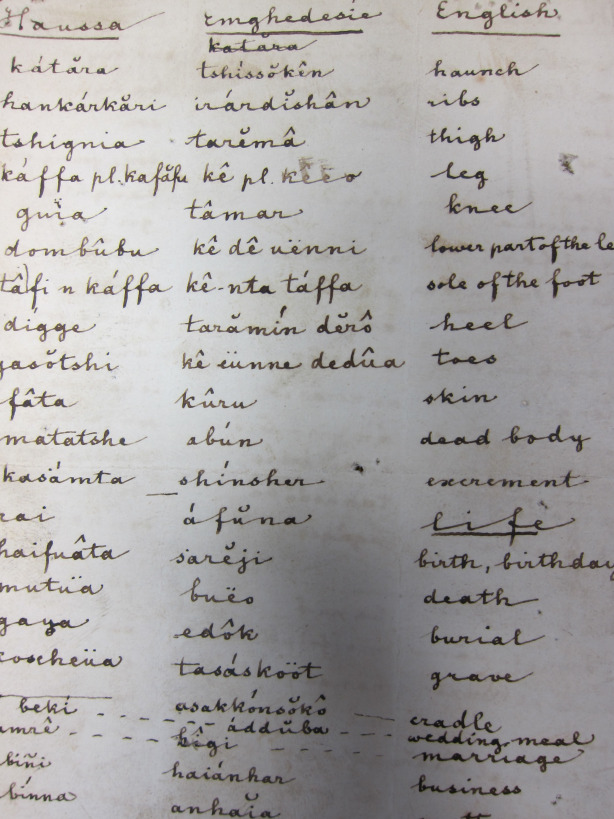 Haussa Emghedesie English
katăra
kátăra tshissŏkên haunch
hankárkări irárdĭshân ribs
tshignia tarĕmâ thigh
káffa pl. kafăfu kê pl. kêeo leg
guia tâmar knee
dombûbu kê dê uënni lower part of the le
tâfi n káffa kê-nta táffa sole of the foot
digge tarămín dĕrô heel
gasŏtshi kê ëünne dedûa toes
fâta kûru skin
matatshe abún dead body
kasámta shínsher excrement
rai áfŭna life
haifuâta sarĕji birth, birthday
mutüa buëo death
gaya edôk burial
koscheüa tasáskoöt grave
beki asakkónsŏkô cradle
amrê áddŭba wedding meal
bîgi marriage
biñi haiánhar business
bínna anhaĭa